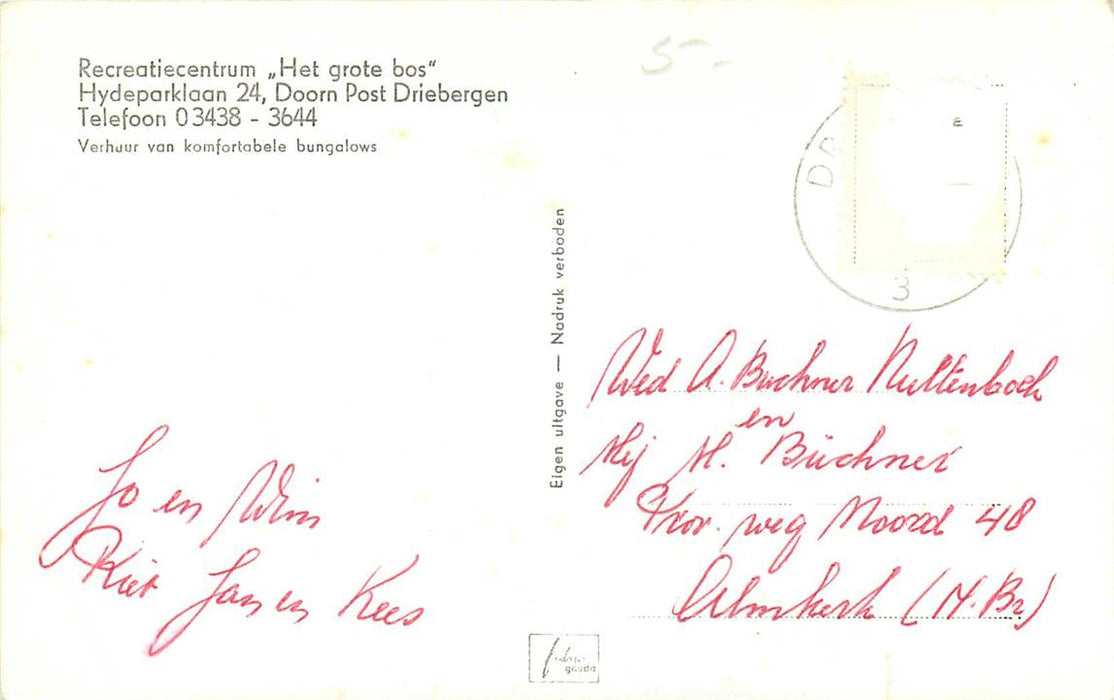 Recreatiecentrum „Het grote bos"
Hydeparklaan 24, Doorn Post Driebergen
Telefoon 03438 - 3644
Verhuur van komfortabele bungalows
5-
3
Eigen uitgave — Nadruk verboden
Wed A. Buchner Nultenbock
en
Mej M. Büchner
Prov. weg Noord 48
Almkerk (N. Br)
Jo en Wim
Riet Jan en Kees
gouda